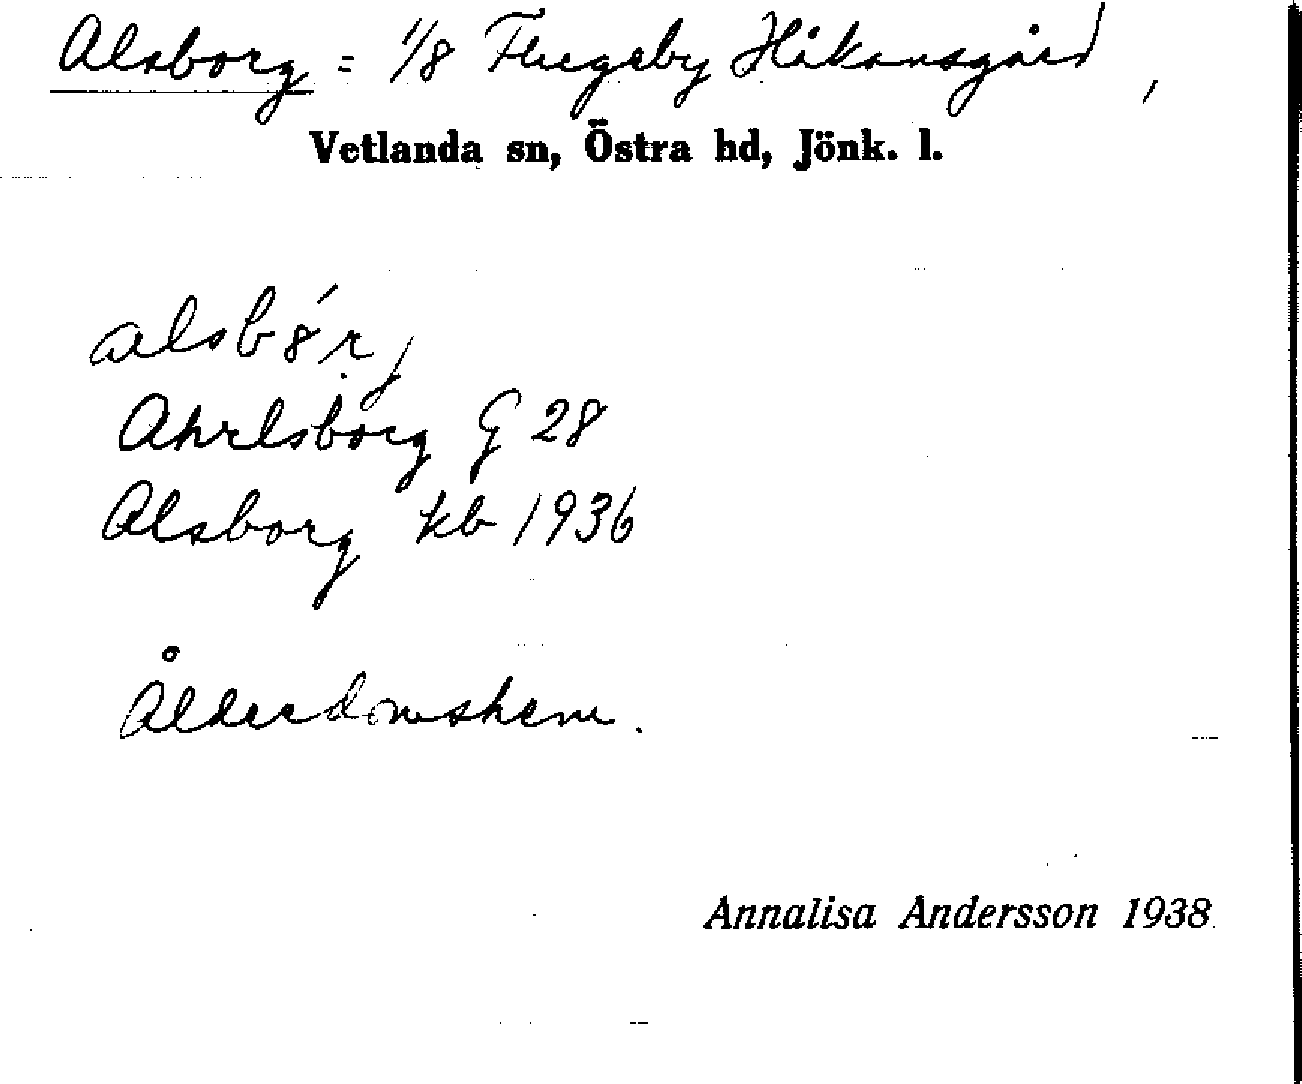 Alsborg = 1/8 Flugeby Håkansgård,
Vetlanda sn, Östra hd, Jönk. l.
alsbȣ́rj
Ahrlsborg G 28
Alsborg kb 1936
Ålderdomshem.
Annalisa Andersson 1938